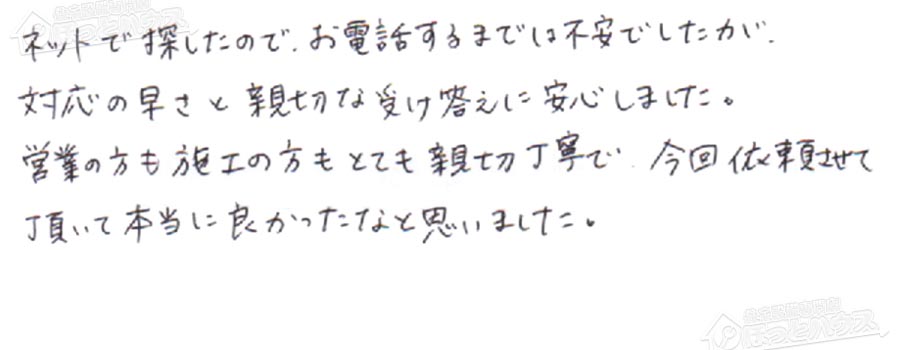 ネットで探したので、お電話するまでは不安でしたが、
対応の早さと親切な受け答えに安心しました。
営業の方も施工の方もとても親切丁寧で、今回依頼させて
頂いて本当に良かったなと思いました。
ほっとハウス